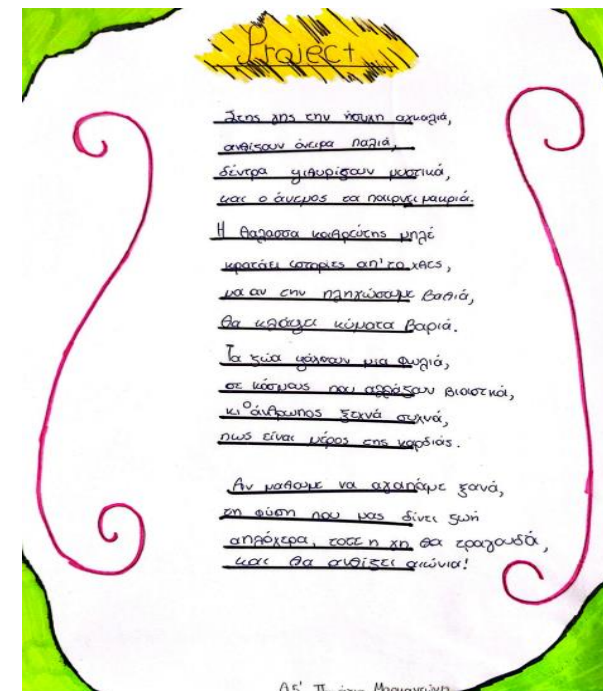 Project
Στης γης την ήσυχη αγκαλιά,
ανθίζουν όνειρα παλιά,
δέντρα ψιθυρίζουν μυστικά,
και ο άνεμος τα παίρνει μακριά.
Η θάλασσα καθρεύτης μπλέ
κρατάει ιστορίες απ' το χθες,
μα αν την πληγώσουμε βαθιά,
θα κλάψει κύματα βαριά.
Τα ζώα ψάχνουν μια φωλιά,
σε κόσμους που αλλάζουν βιαστικά,
κι ο άνθρωπος ξεχνά συχνά,
πως είναι μέρος της καρδιάς.
Αν μαθουμε να αγαπάμε ξανά,
τη φύση που μας δίνει ζωή
απλόχερα, τοτε η γη θα τραγουδά,
και θα ανθίζει αιώνια!